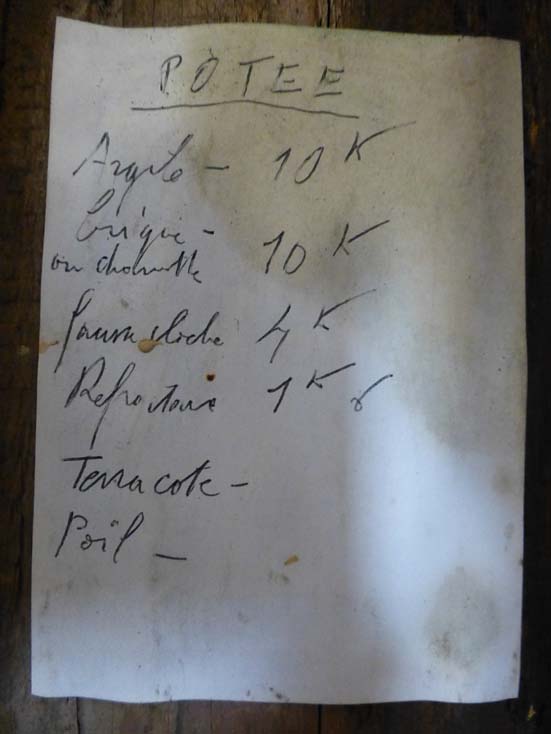 POTEE
Argile - 10 K
brique -
ou chamotte 10 K
cloche 4 K
Refractaire 1 K
Terracote -
Poil -